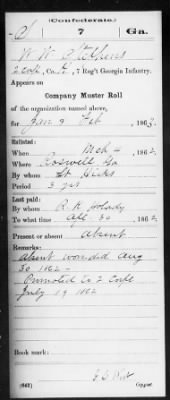 (Confederate.)
S 7 Ga.
W W Stephens
2 Corpl, Co. , 7 Reg't Georgia Infantry.
Appears on
Company Muster Roll
of the organization named above,
for Jan & Feb, 1863.
Enlisted:
When Mch 4, 1862.
Where Roswell Ga
By whom Lt. Hicks
Period 3 yrs
Last paid:
By whom R. K. Holady
To what time Apl 30, 1862.
Present or absent Absent
Remarks:
Absent wounded Aug
30 1862 -
Promoted to 2 Corpl
July 19 1862
Book mark:
(642) Copyist.